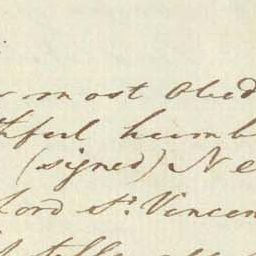 most Obed
thful humb
(signed) Ne
Lord St. Vincen